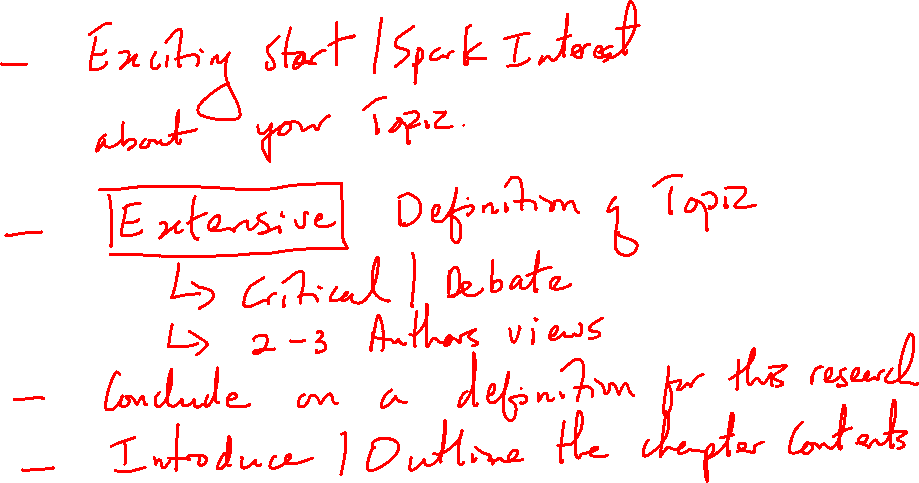 - Exciting Start / Spark Interest
about your Topic.
- Extensive Definition of Topic
↳ Critical / Debate
↳ 2-3 Authors views
- Conclude on a definition for this research
- Introduce / Outline the chapter Contents